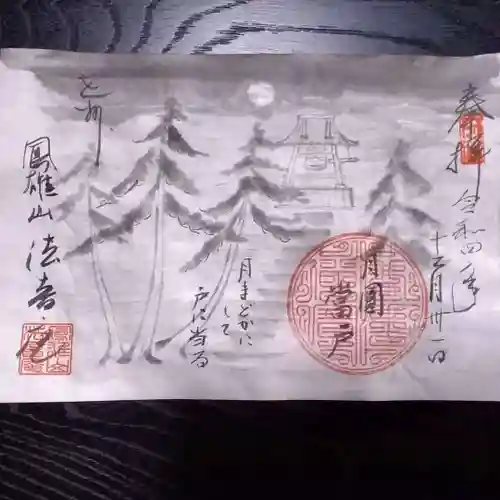 奉拝
令和四年
十二月卅一日
月圓
當戸
月まどかに
して
戸に当る
鳳雄山 法音庵